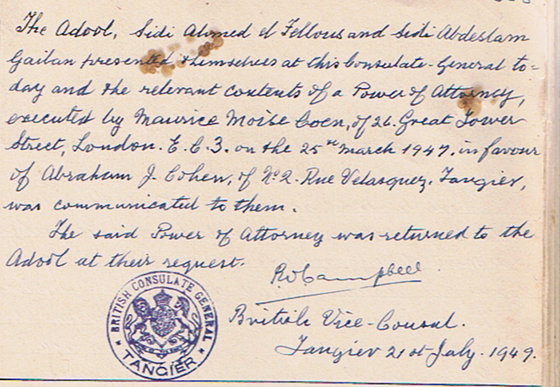 The Adool, Sidi Ahmed el Fellous and Sidi Abdeslam
Gailan presented themselves at this Consulate-General to-
day and the relevant contents of a Power of Attorney,
executed by Maurice Moise Coen, of 26 Great Tower
Street, London. E.C.3. on the 25th March 1947, in favour
of Abraham J. Cohen, of No 2. Rue Velasquez, Tangier,
was communicated to them.
The said Power of Attorney was returned to the
Adool at their request.
Campbell
British Vice-Consul.
Tangier 21st July. 1949.
BRITISH CONSULATE GENERAL
TANGIER